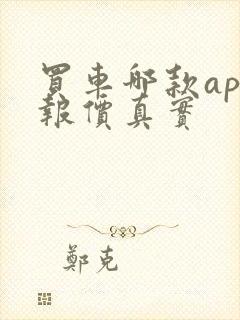 買車哪款ap
報價真實
鄭克